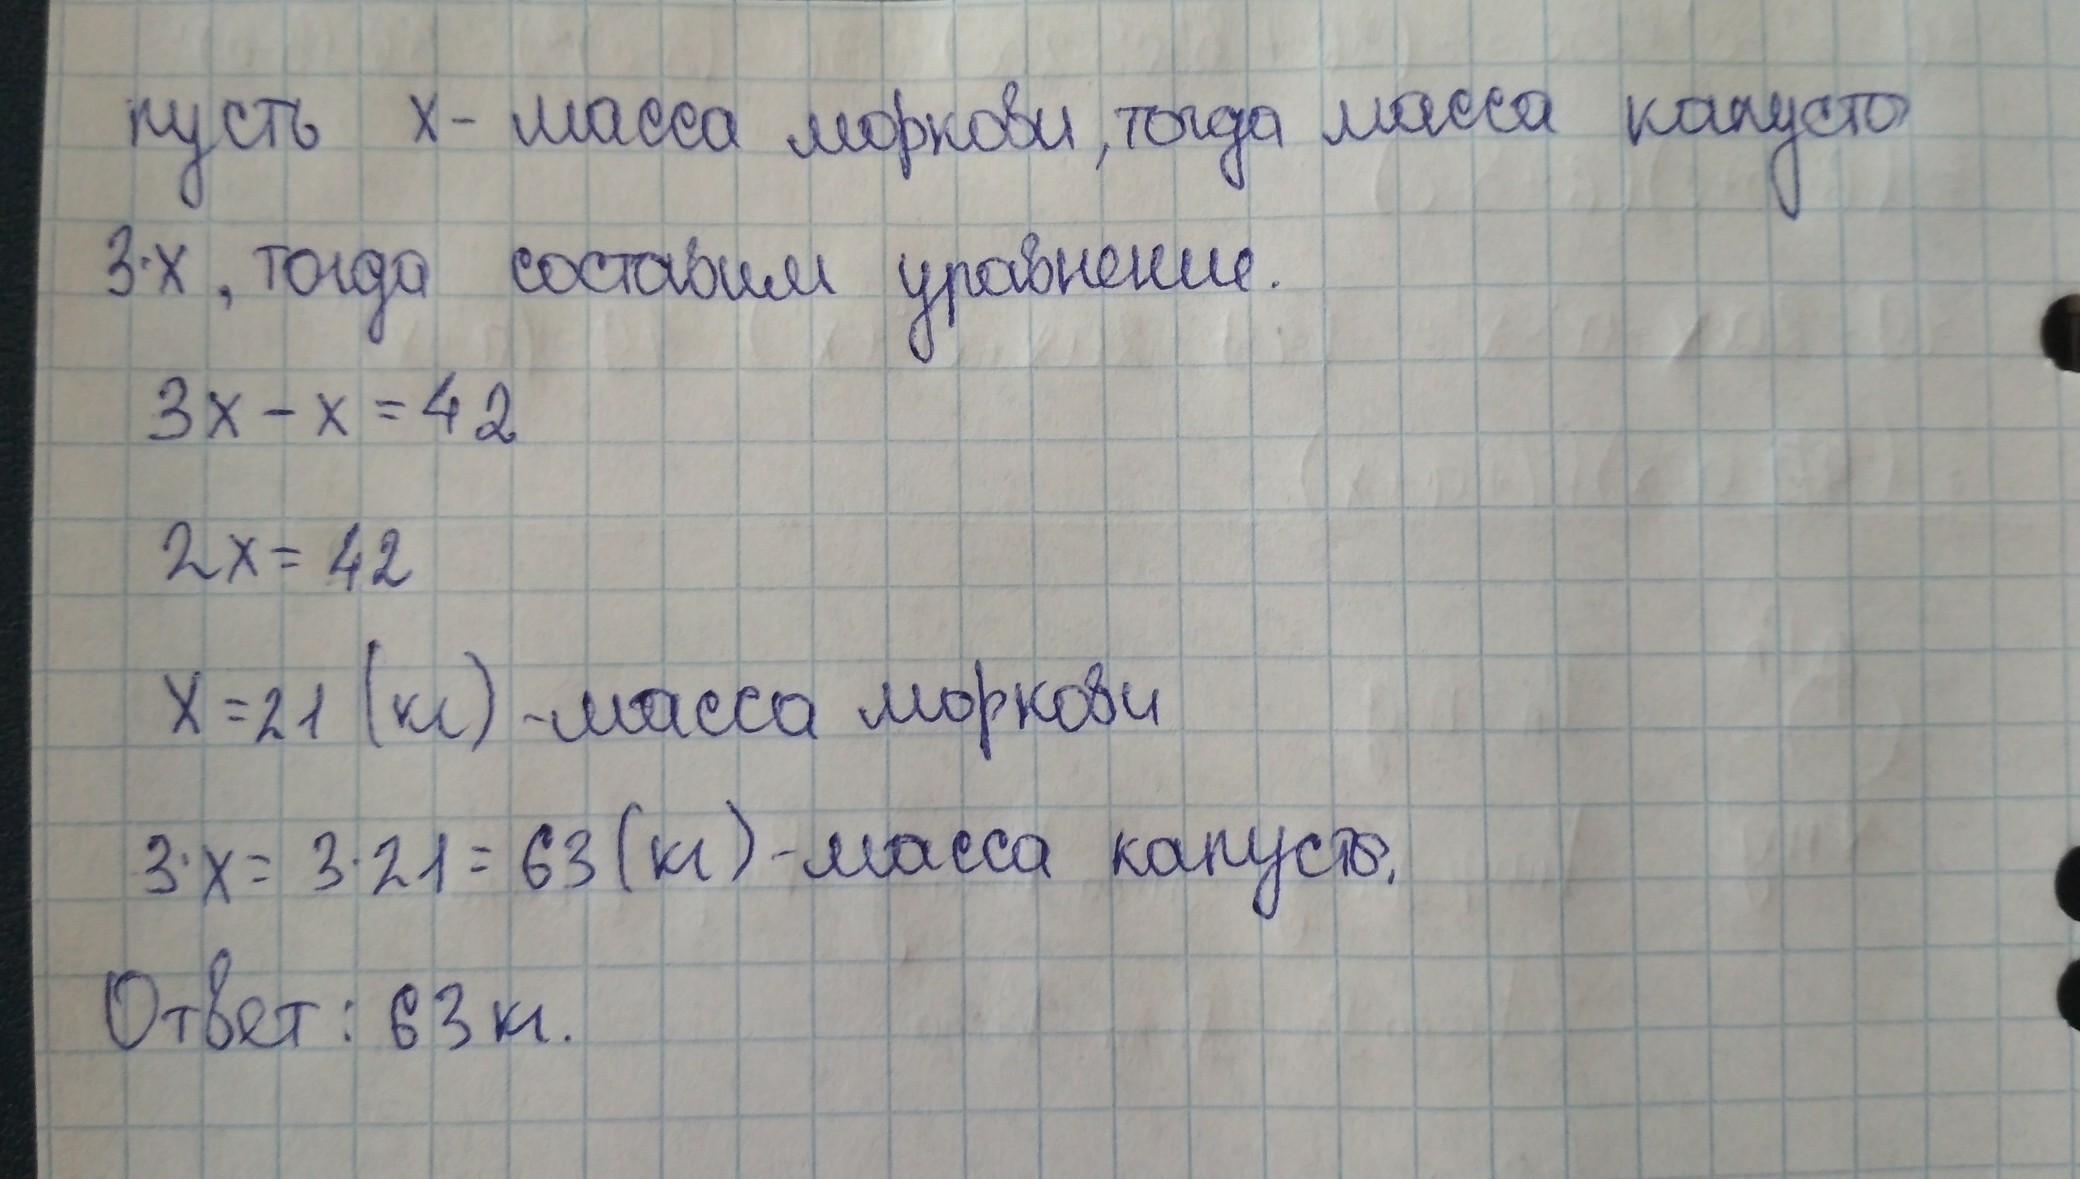 пусть х - масса моркови, тогда масса капусты
3·х, тогда составим уравнение.
3х - х = 42
2х = 42
х = 21 (кг) - масса моркови
3·х = 3·21 = 63 (кг) - масса капусты.
Ответ: 63 кг.